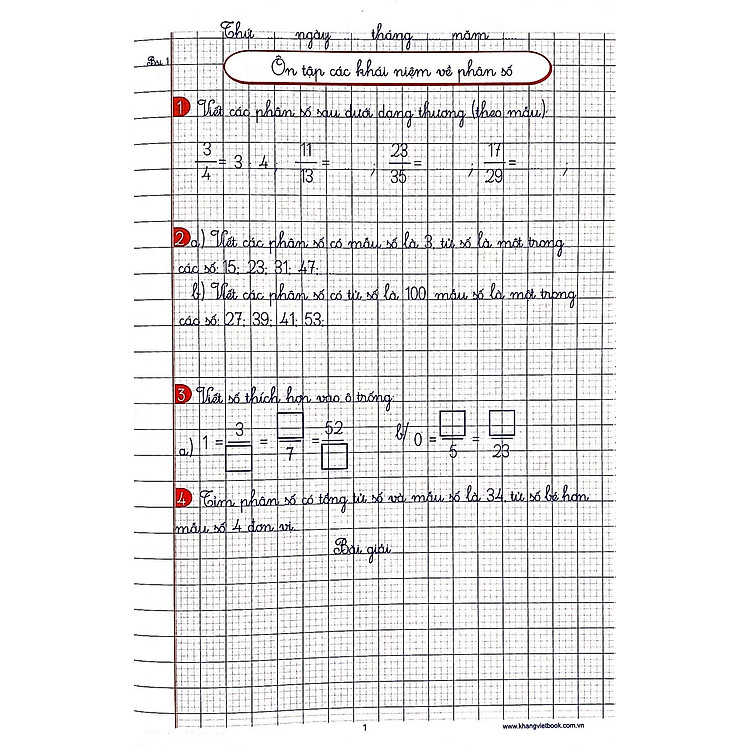 Thứ ... ngày ... tháng ... năm ...
Bài 1
Ôn tập các khái niệm về phân số
1 Viết các phân số sau dưới dạng thương (theo mẫu)
3/4 = 3 : 4 ; 11/13 = ... ; 23/35 = ... ; 17/29 = ... ;
2 a) Viết các phân số có mẫu số là 3, tử số là một trong
các số: 15; 23; 31; 47;
b) Viết các phân số có tử số là 100, mẫu số là một trong
các số: 27; 39; 41; 53;
3 Viết số thích hợp vào ô trống:
a) 1 = 3/□ = □/7 = 52/□ b/ 0 = □/5 = □/23
4 Tìm phân số có tổng tử số và mẫu số là 34, tử số bé hơn
mẫu số 4 đơn vị.
Bài giải
1
www.khangvietbook.com.vn